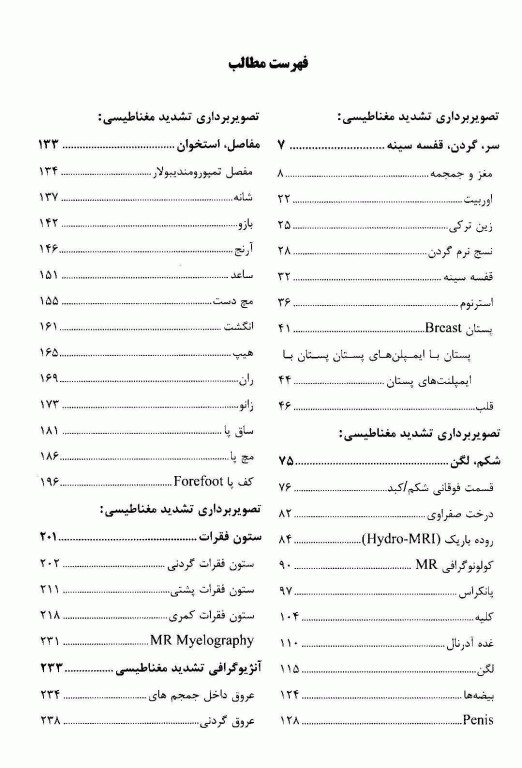 فهرست مطالب
تصویربرداری تشدید مغناطیسی:
سر، گردن، قفسه سینه ........ ۷
مغز و جمجمه ........ ۸
اوربیت ........ ۲۲
زین ترکی ........ ۲۵
نسج نرم گردن ........ ۲۸
قفسه سینه ........ ۳۲
استرنوم ........ ۳۶
پستان Breast ........ ۴۱
پستان با ایمپلن‌های پستان پستان با
ایمپلنت‌های پستان ........ ۴۴
قلب ........ ۴۶
تصویربرداری تشدید مغناطیسی:
شکم، لگن ........ ۷۵
قسمت فوقانی شکم/کبد ........ ۷۶
درخت صفراوی ........ ۸۲
روده باریک (Hydro-MRI) ........ ۸۴
کولونوگرافی MR ........ ۹۰
پانکراس ........ ۹۷
کلیه ........ ۱۰۴
غده آدرنال ........ ۱۱۰
لگن ........ ۱۱۵
بیضه‌ها ........ ۱۲۴
Penis ........ ۱۲۸
تصویربرداری تشدید مغناطیسی:
مفاصل، استخوان ........ ۱۳۳
مفصل تمپورومندیبولار ........ ۱۳۴
شانه ........ ۱۳۷
بازو ........ ۱۴۲
آرنج ........ ۱۴۶
ساعد ........ ۱۵۱
مچ دست ........ ۱۵۵
انگشت ........ ۱۶۱
هیپ ........ ۱۶۵
ران ........ ۱۶۹
زانو ........ ۱۷۳
ساق پا ........ ۱۸۱
مچ پا ........ ۱۸۶
کف پا Forefoot ........ ۱۹۶
تصویربرداری تشدید مغناطیسی:
ستون فقرات ........ ۲۰۱
ستون فقرات گردنی ........ ۲۰۲
ستون فقرات پشتی ........ ۲۱۱
ستون فقرات کمری ........ ۲۱۸
MR Myelography ........ ۲۳۱
آنژیوگرافی تشدید مغناطیسی ........ ۲۳۳
عروق داخل جمجم های ........ ۲۳۴
عروق گردنی ........ ۲۳۸